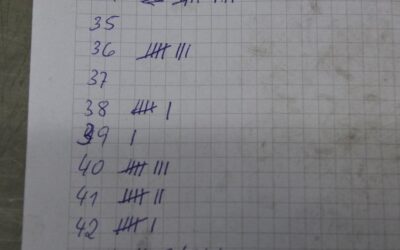 35
36 卌 III
37
38 卌 I
39 I
40 卌 III
41 卌 II
42 卌 I